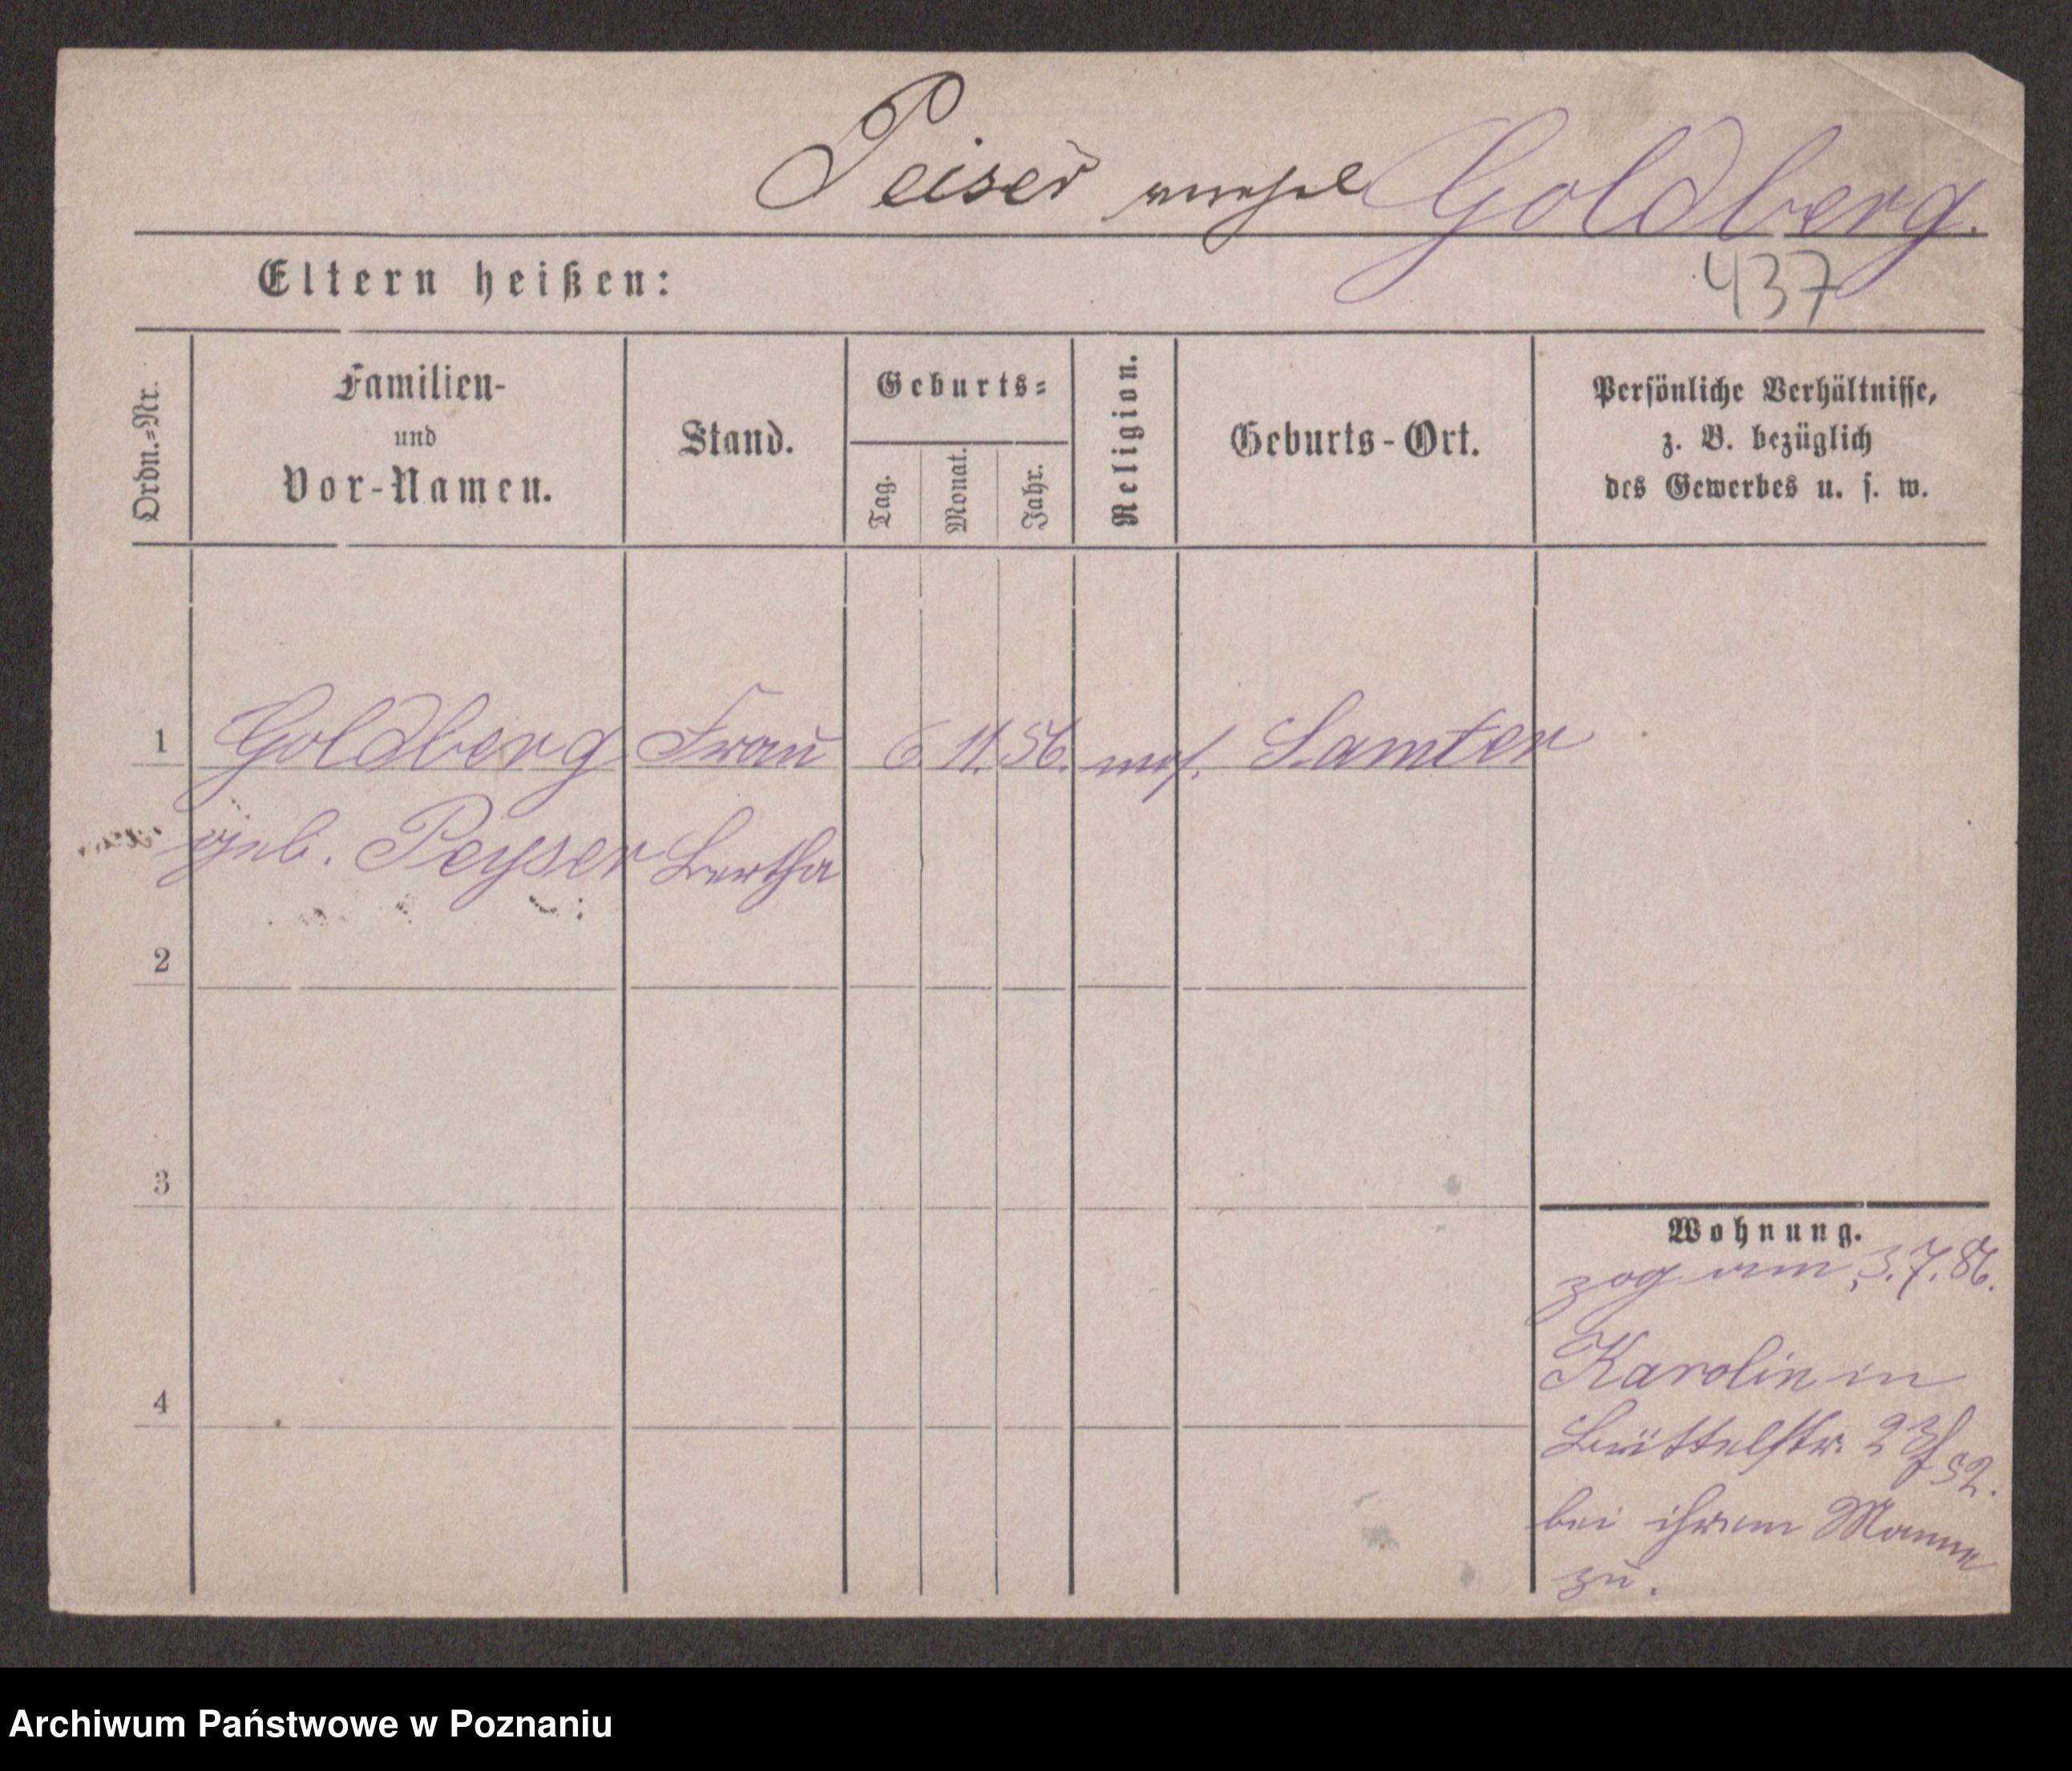 Peiser verehel Goldberg.
437
Eltern heißen:
Ordn.=Nr.
Familien-
und
Vor-Namen.
Stand.
Geburts=
Tag.
Monat.
Jahr.
Religion.
Geburts-Ort.
Persönliche Verhältnisse,
z. B. bezüglich
des Gewerbes u. s. w.
1 Goldberg Frau 6. 11. 56. mos. Samter
geb. Peyser Bertha
2
3
4
Wohnung.
zog am 3.7.86.
Karolin in
Büttelstr. 23/
bei ihrem Manne
zu.
Archiwum Państwowe w Poznaniu